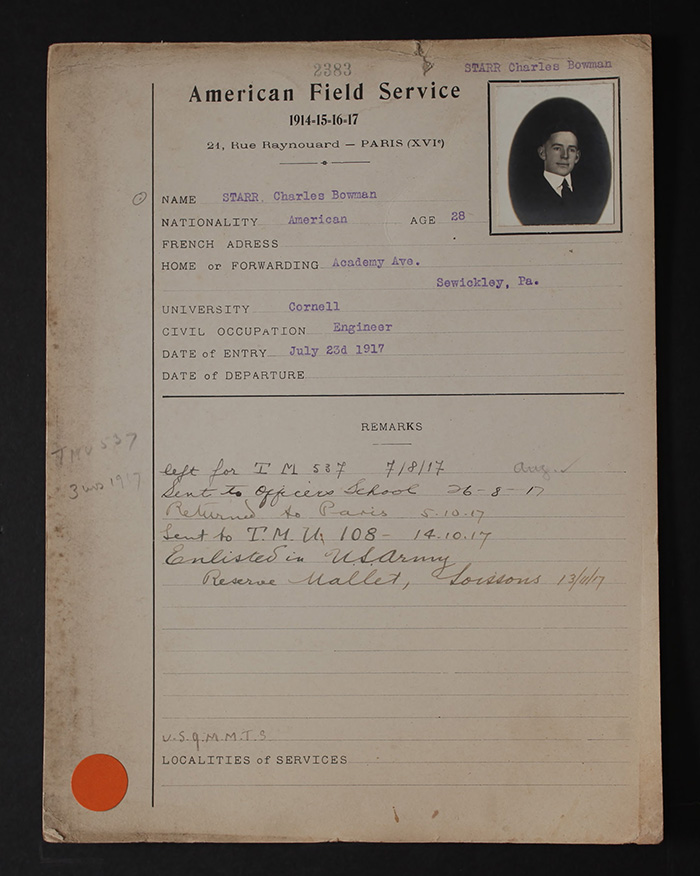 2383
STARR Charles Bowman
American Field Service
1914-15-16-17
21, Rue Raynouard — PARIS (XVIe)
NAME STARR, Charles Bowman
NATIONALITY American AGE 28
FRENCH ADRESS
HOME or FORWARDING Academy Ave.
Sewickley, Pa.
UNIVERSITY Cornell
CIVIL OCCUPATION Engineer
DATE of ENTRY July 23d 1917
DATE of DEPARTURE
REMARKS
TMU 537
3 1917
left for T M 537 7/8/17 Aug. ✓
Sent to Officers School 26-8-17
Returned to Paris 5.10.17
Sent to T.M.U. 108 - 14.10.17
Enlisted in U.S. Army
Reserve Mallet, Soissons 13/11/17
U.S.Q.M.M.T.S
LOCALITIES of SERVICES